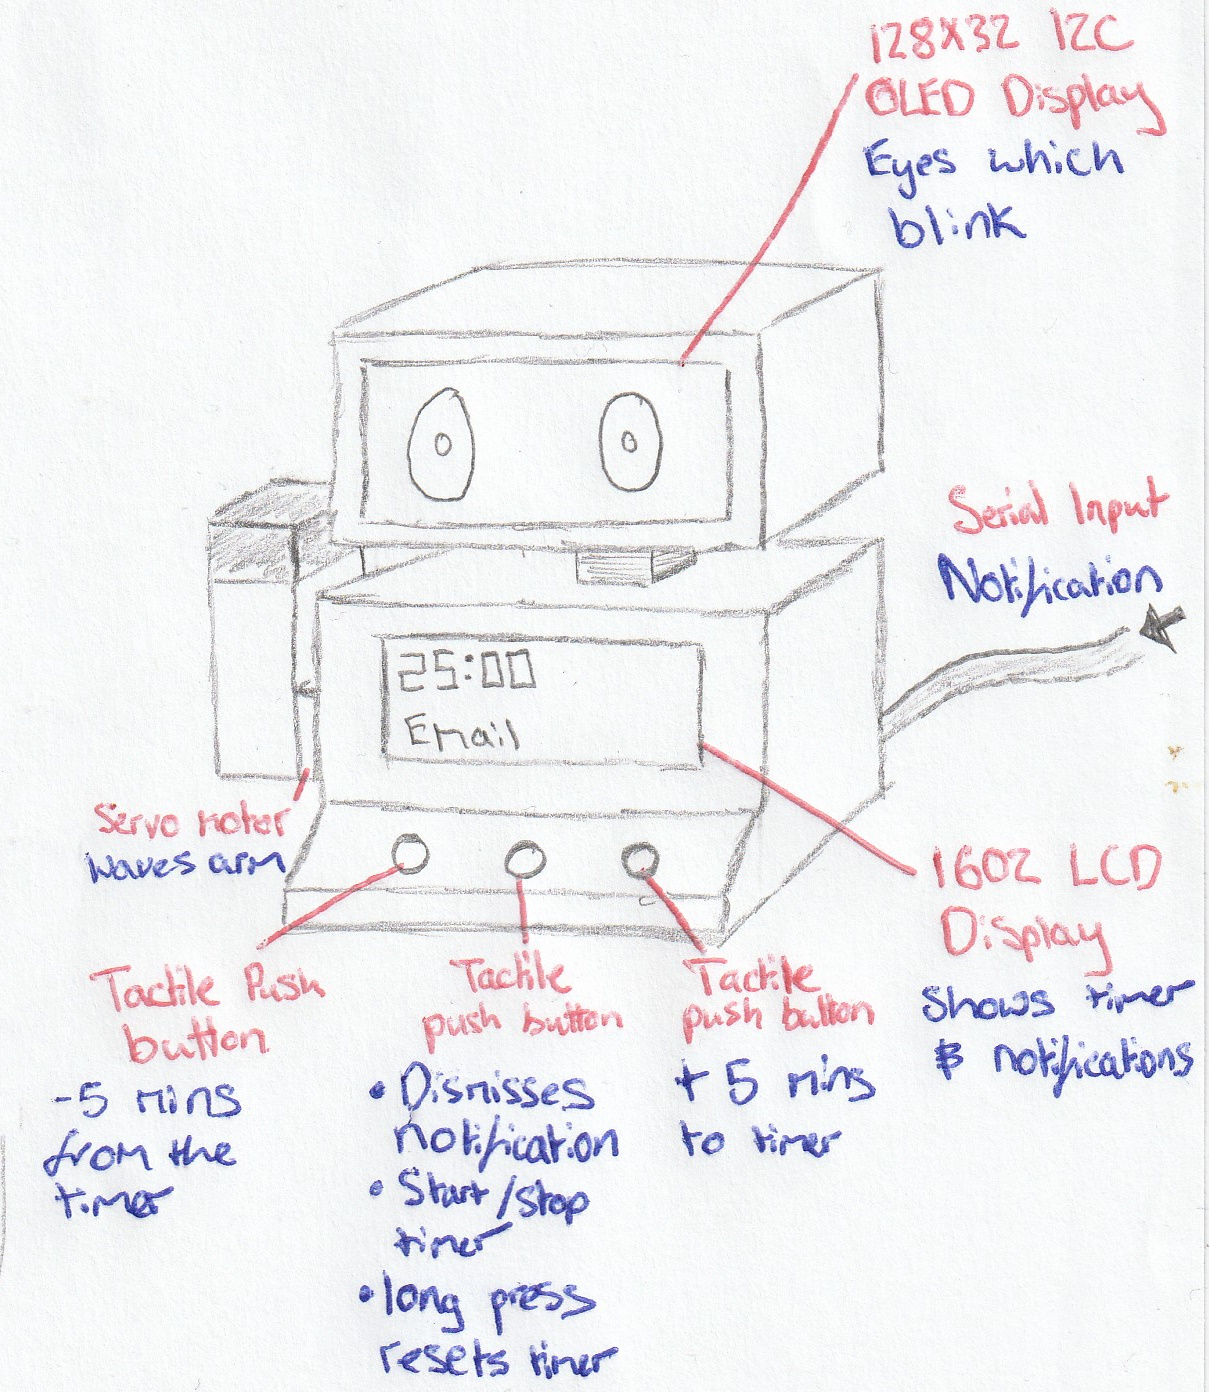 128X32 I2C
OLED Display
Eyes which
blink
Serial Input
Notification
25:00
Email
Servo motor
waves arm
1602 LCD
Display
Shows timer
& notifications
Tactile Push
button
-5 mins
from the
timer
Tactile
push button
• Dismisses
notification
• Start/Stop
timer
• long press
resets timer
Tactile
push button
+ 5 mins
to timer